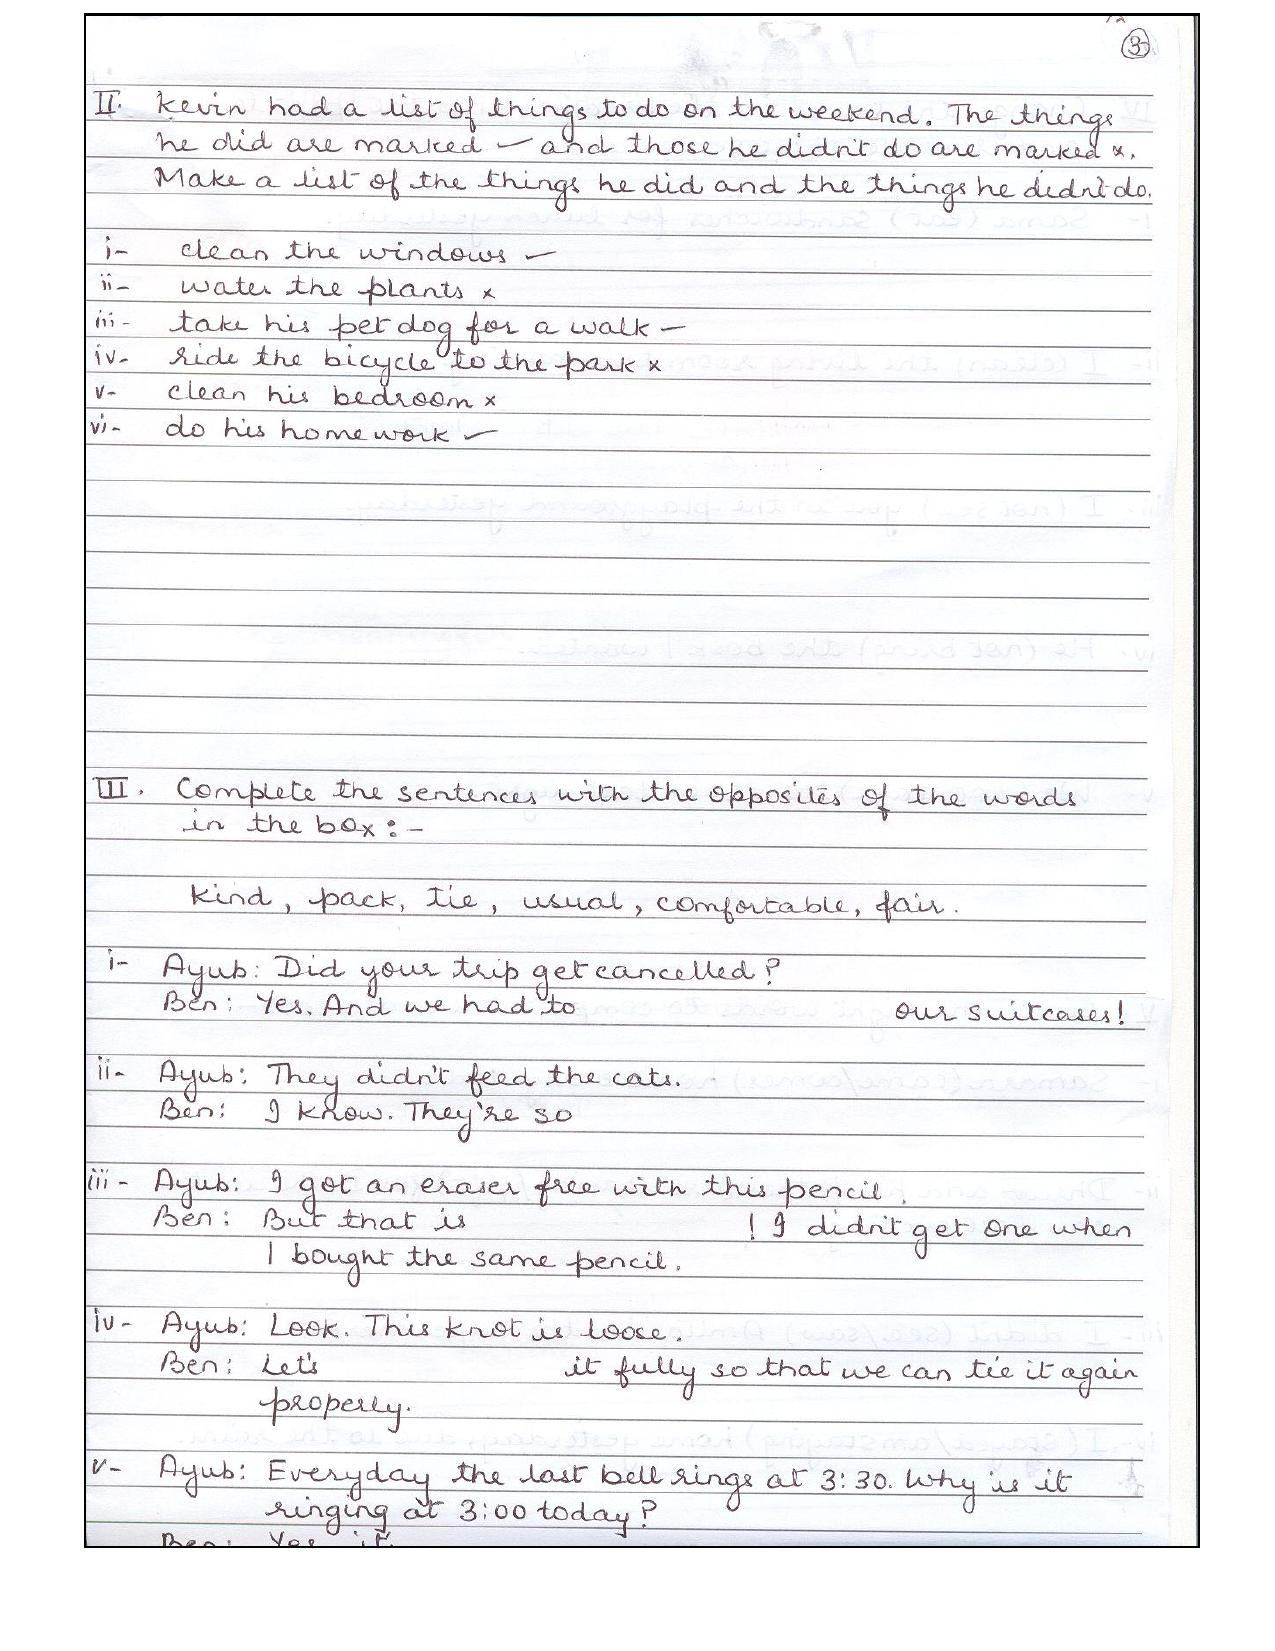 3
II. Kevin had a list of things to do on the weekend. The things
he did are marked ✓ and those he didn't do are marked x.
Make a list of the things he did and the things he didn't do.
i- clean the windows ✓
ii- water the plants x
iii- take his pet dog for a walk ✓
iv- ride the bicycle to the park x
v- clean his bedroom x
vi- do his homework ✓
III. Complete the sentences with the opposites of the words
in the box:-
Kind, pack, tie, usual, comfortable, fair.
i- Ayub: Did your trip get cancelled?
Ben: Yes. And we had to our suitcases!
ii- Ayub: They didn't feed the cats.
Ben: I know. They're so
iii- Ayub: I got an eraser free with this pencil.
Ben: But that is ! I didn't get one when
I bought the same pencil.
iv- Ayub: Look. This knot is loose.
Ben: Let's it fully so that we can tie it again
properly.
v- Ayub: Everyday the last bell rings at 3:30. Why is it
ringing at 3:00 today?
Ben: Yes it